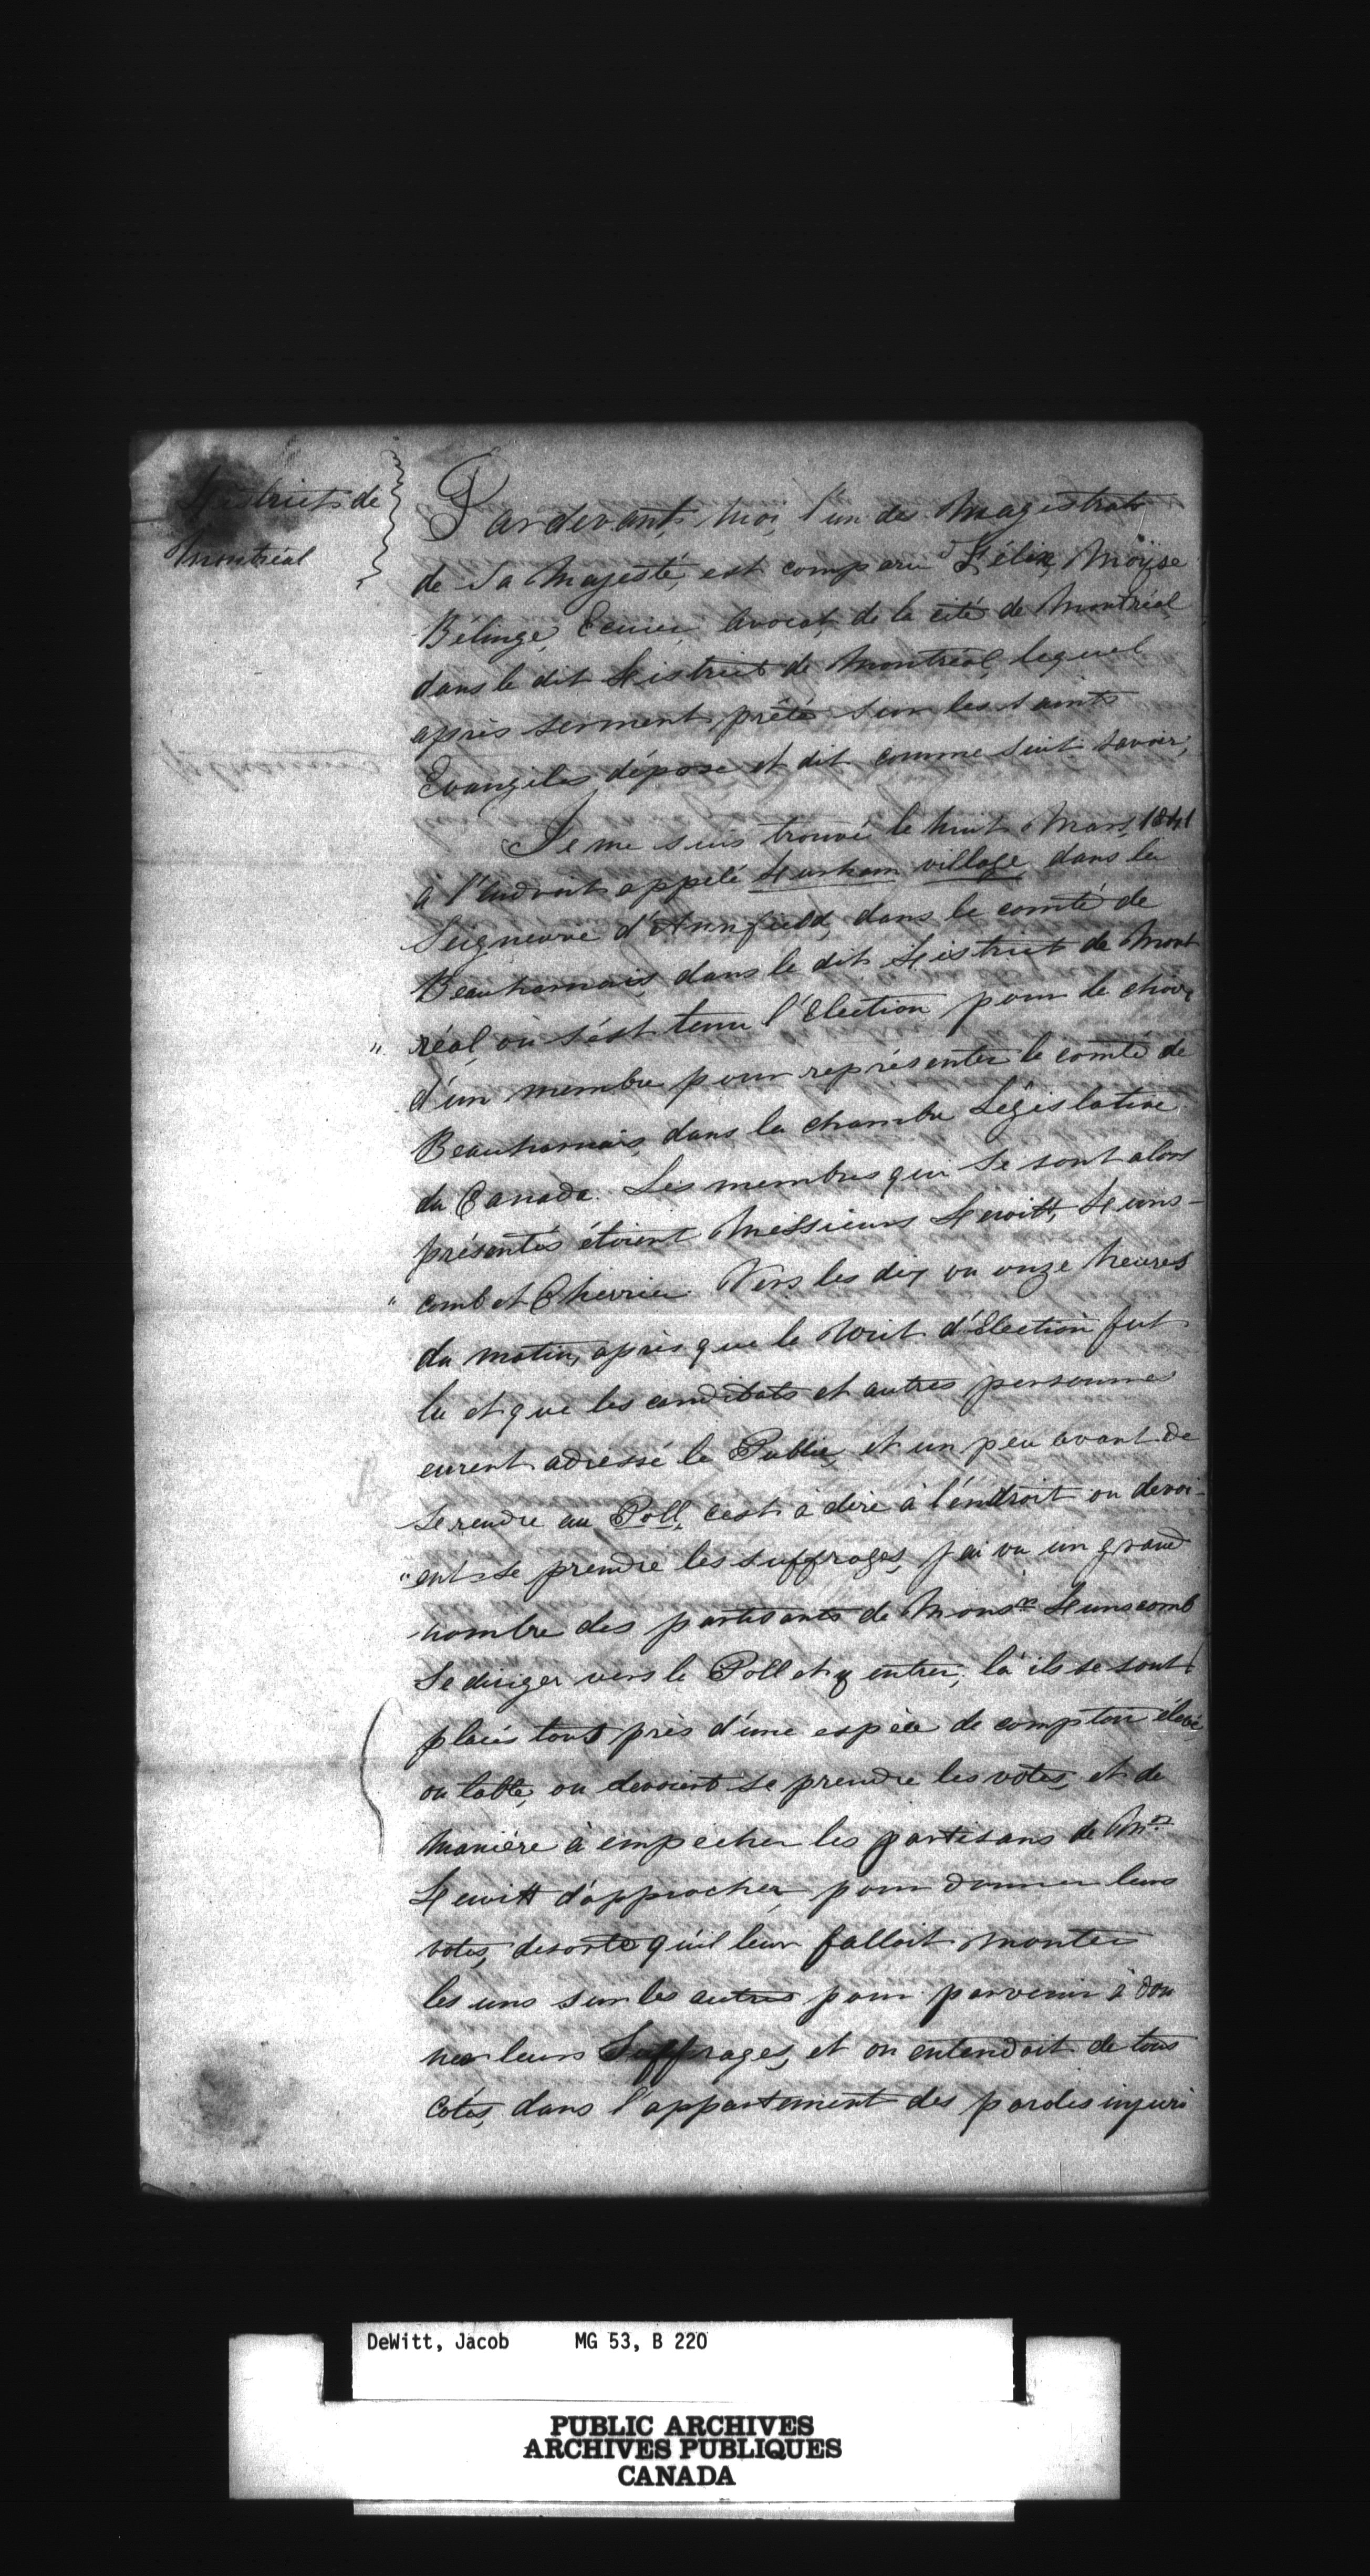 District de
Montréal
Pardevant, Moi, l'un des Magistrats
de Sa Majesté, est comparu Félix Moÿse
Bélinge, Ecuier, Avocat, de la cité de Montréal
dans le dit District de Montréal, lequel
après serment prêté sur les saints
Evangiles dépose et dit comme suit savoir,
Je me suis trouvé le huit Mars, 1841
à l'endroit appelé Durham village, dans la
Seigneurie d'Annfield, dans le comté de
Beauharnais, dans le dit District de Mont
" réal, où s'est tenu l'Election pour le choix
d'un membre pour représenter le comté de
Beauharnais, dans la chambre Législative
du Canada. Les membres qui se sont alors
présentés étoient Messieurs Dewitt, Duns-
" comb et Cherrier. Vers les dix ou onze heures
du matin, après que le Writ d'Election fut
lu et que les candidats et autres personnes
eurent adressé le Public, et un peu avant de
se rendre au Poll, cest à dire à l'endroit ou devoi-
" ent se prendre les suffrages, j'ai vu un grand
nombre des partisants de Monsr. Dunscomb
se diriger vers le Poll et y entrer, là ils se sont
placés tout près d'une espèce de comptoir élevé,
ou table, ou devoient se prendre les votes, et de
manière à empecher les partisans de Mr.
Dewitt d'approcher, pour donner leurs
votes, desorte qu'il leur falloit monter
les uns sur les autres pour parvenir à don
ner leurs Suffrages, et on entendoit de tous
cotés, dans l'appartement des paroles injuri
DeWitt, Jacob MG 53, B 220
PUBLIC ARCHIVES
ARCHIVES PUBLIQUES
CANADA